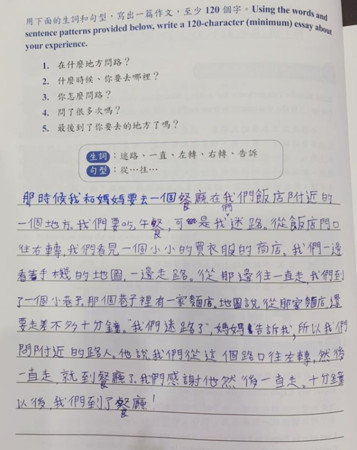 用下面的生詞和句型，寫出一篇作文，至少 120 個字。Using the words and
sentence patterns provided below, write a 120-character (minimum) essay about
your experience.
1. 在什麼地方問路？
2. 什麼時候，你要去哪裡？
3. 你怎麼問路？
4. 問了很多次嗎？
5. 最後到了你要去的地方了嗎？
生詞：迷路、一直、左轉、右轉、告訴
句型：從…往…
那時候我和媽媽要去一個餐廳在我們飯店附近的
一個地方。我們要吃午餐，可是我們迷路。從飯店門口
往右轉，我們看見一個小小的買衣服的商店。我們一邊
看著手機的地圖，一邊走路。從那邊往一直走，我們到
了一個小巷子。那個巷子裡有一家麵店。地圖說從那家麵店，還
要走差不多十分鐘。"我們迷路了"，媽媽告訴我，所以我們
問附近的路人。他說我們從這個路口往右轉，然後
一直走，就到餐廳了。我們感謝他然後一直走。十分鐘
以後，我們到了餐廳！